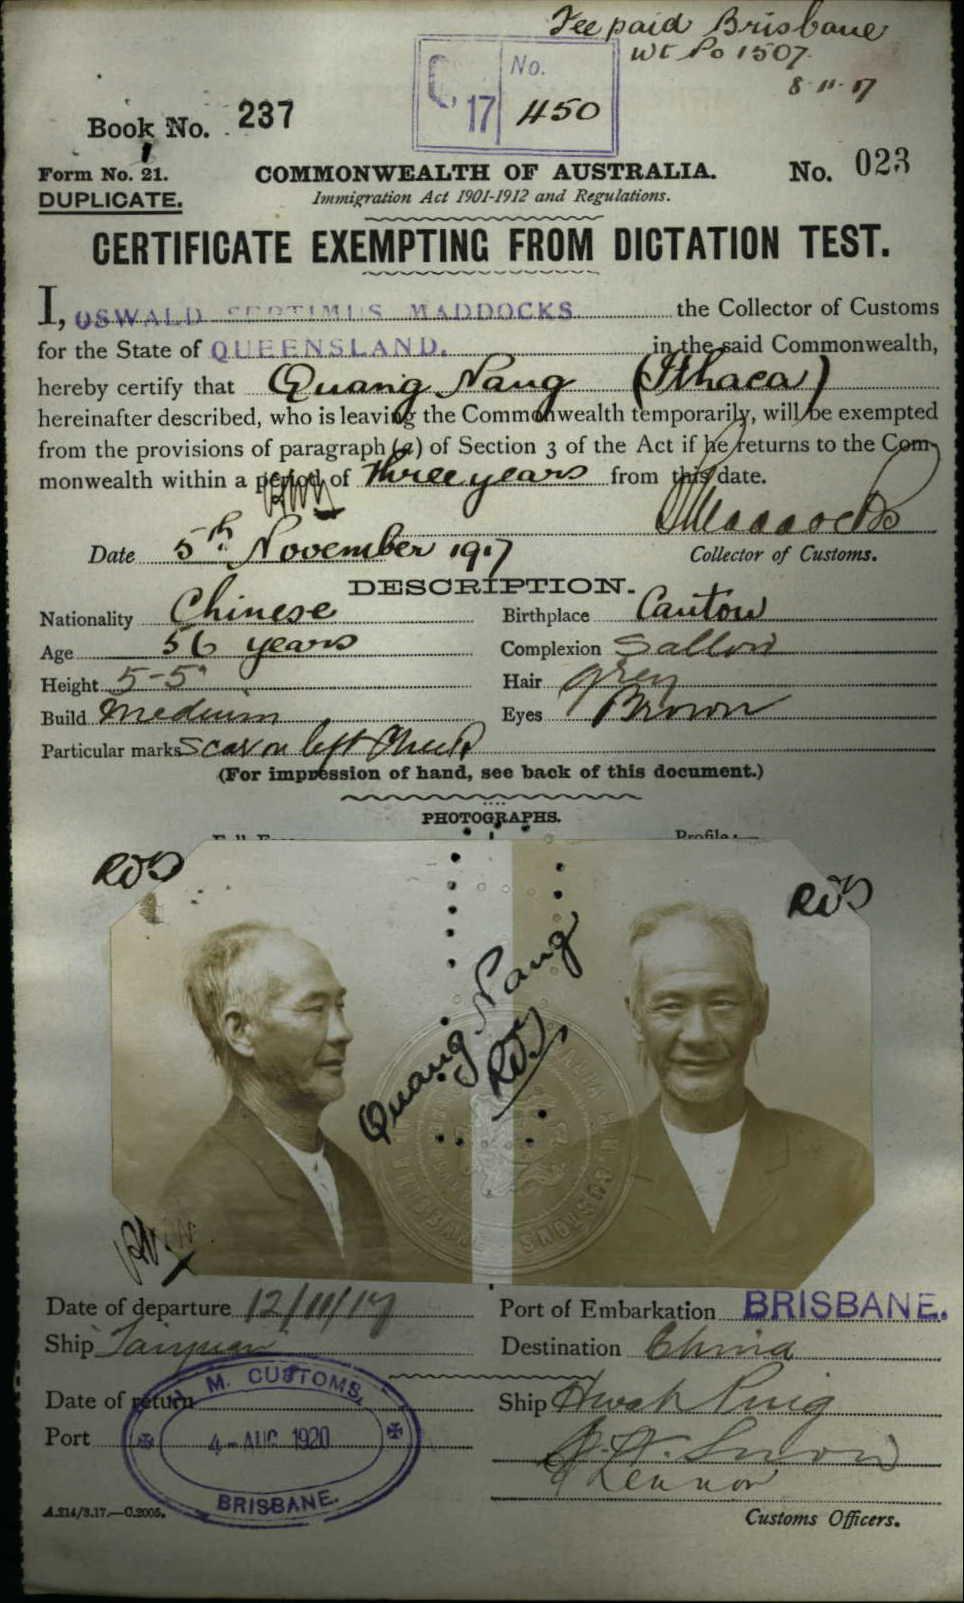 Fee paid Brisbane
No. 1507
8-11-17
C. 17 No. 450
Book No. 237
Form No. 21.
COMMONWEALTH OF AUSTRALIA.
No. 023
DUPLICATE.
Immigration Act 1901-1912 and Regulations.
CERTIFICATE EXEMPTING FROM DICTATION TEST.
I, OSWALD SEPTIMUS MADDOCKS the Collector of Customs
for the State of QUEENSLAND. in the said Commonwealth,
hereby certify that Quang Nang (Ithaca)
hereinafter described, who is leaving the Commonwealth temporarily, will be exempted
from the provisions of paragraph (a) of Section 3 of the Act if he returns to the Com-
monwealth within a period of three years from this date.
Maddocks
Date 5th November 1917 Collector of Customs.
DESCRIPTION.
Nationality Chinese Birthplace Canton
Age 56 years Complexion Sallow
Height 5-5" Hair grey
Build Medium Eyes Brown
Particular marks Scar on left cheek
(For impression of hand, see back of this document.)
PHOTOGRAPHS.
Profile:—
Quang Nang
Date of departure 12/11/17 Port of Embarkation BRISBANE.
Ship Taiyuan Destination China
Date of return Ship Hwah Ping
Port
H. M. CUSTOMS,
4-AUG 1920
BRISBANE.
Lennon
A.214/3.17.—C.2005.
Customs Officers.